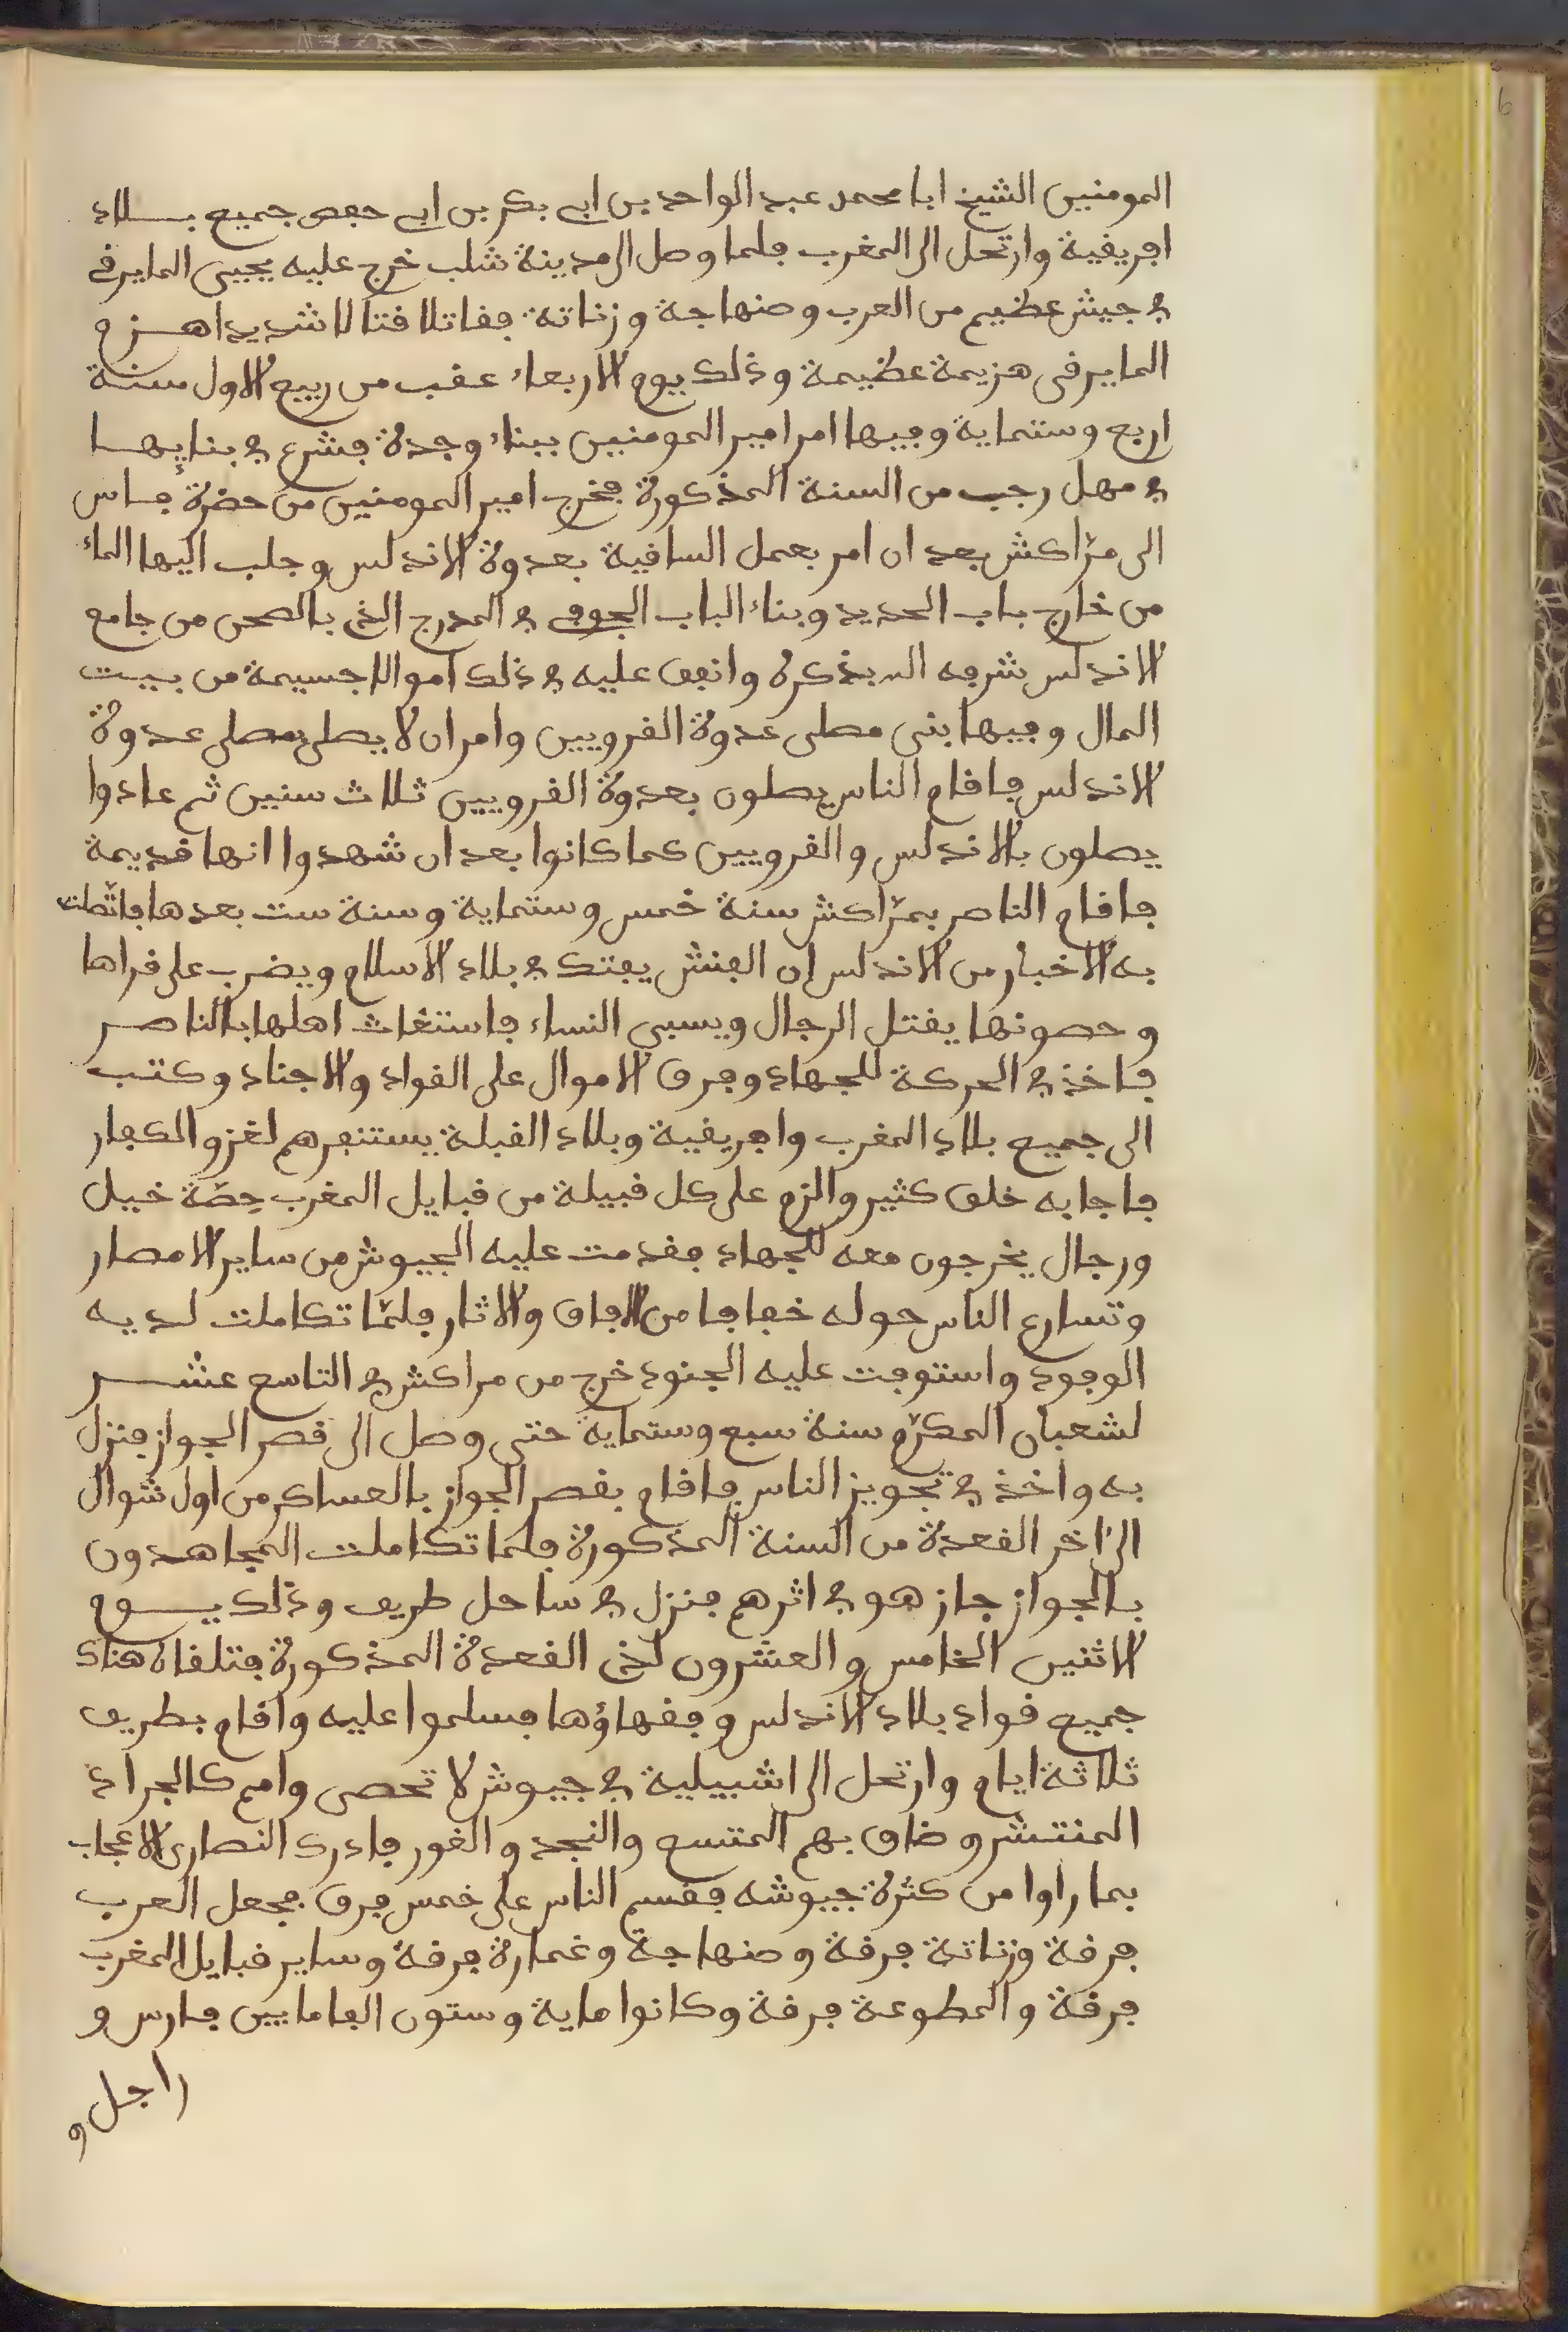 المومنين الشيخ ابا محمد عبد الواحد بن ابي بكر بن ابي حفص جميع بلاد
افريقية وارتحل الى المغرب فلما وصل الى مدينة شلب خرج عليه يحيى المايرقي
في جيش عظيم من العرب وصنهاجة وزناتة فقاتلا قتالا شديدا هزم
المايرقي هزيمة عظيمة وذلك يوم الاربعاء عقب من ربيع الاول سنة
اربع وستماية وفيها امر امير المومنين ببناء وجدة فشرع في بنايها
في مهل رجب من السنة المذكورة فخرج امير المومنين من حضرة فاس
الى مرّاكش بعد ان امر بعمل السافية بعدوة الاندلس وجلب اليها الماء
من خارج باب الحديد وبناء الباب الجوفي في المدرج الذي بالصحن من جامع
الاندلس شرفه الله بذكره وانفق عليه في ذلك اموالا جسيمة من بيت
المال وفيها بنى مصلى عدوة القرويين وامر ان لا يصلى بمصلى عدوة
الاندلس فاقام الناس يصلون بعدوة القرويين ثلاث سنين ثم عادوا
يصلون بالاندلس والقرويين كما كانوا بعد ان شهدوا انها قديمة
فاقام الناصر بمرّاكش سنة خمس وستماية وسنة ست بعدها فاتّصلت
به الاخبار من الاندلس ان الفنش يفتك في بلاد الاسلام ويضرب على قراها
وحصونها يقتل الرجال ويسبي النساء فاستغاث اهلها بالناصر
فاخذ في الحركة للجهاد وفرق الاموال على القواد والاجناد وكتب
الى جميع بلاد المغرب وافريقية وبلاد القبلة يستنفرهم لغزو الكفار
فاجابه خلق كثير والزم على كل قبيلة من قبايل المغرب حِصّة خيل
ورجال يخرجون معه للجهاد فقدمت عليه الجيوش من ساير الامصار
وتسارع الناس حوله خفافا من الافاق والاثار فلمّا تكاملت لديه
الوفود واستوفت عليه الجنود خرج من مراكش في التاسع عشر
لشعبان المكرّم سنة سبع وستماية حتى وصل الى قصر الجواز فنزل
به واخذ في تجويز الناس فاقام بقصر الجواز بالعساكر من اول شوال
الى اخر القعدة من السنة المذكورة فلما تكاملت المجاهدون
بالجواز جاز هو في اثرهم فنزل في ساحل طريف وذلك يوم
الاثنين الخامس والعشرون لذي القعدة المذكورة فتلقاه هناك
جميع قواد بلاد الاندلس وفقهاؤها فسلموا عليه واقام بطريف
ثلاثة ايام وارتحل الى اشبيلية في جيوش لا تحصى وامم كالجراد
المنتشر وضاق بهم المتسع والنجد والغور فادرك النصارى الاعجاب
بما راوا من كثرة جيوشه فقسم الناس على خمس فرق فجعل العرب
فرقة وزناتة فرقة وصنهاجة وغمارة فرقة وساير قبايل المغرب
فرقة والمطوعة فرقة وكانوا ماية وستون الفا ما بين فارس و
راجل و